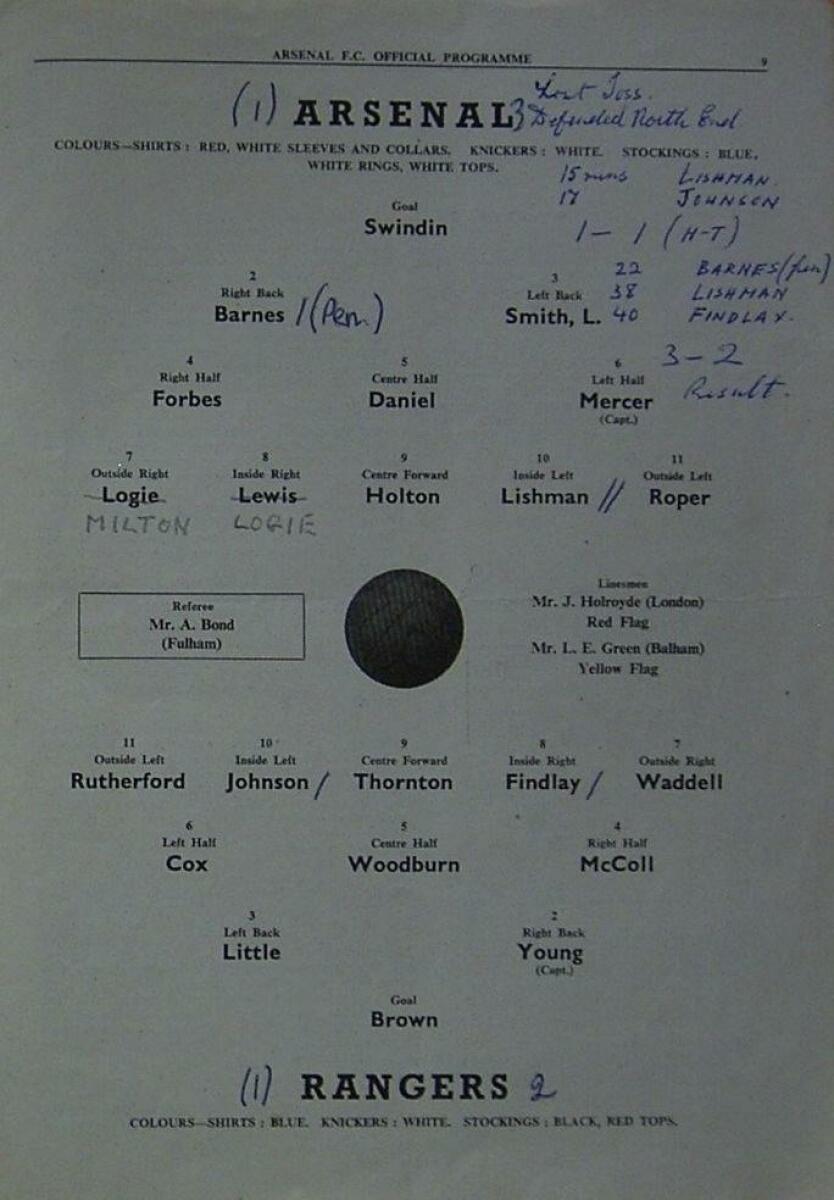 ARSENAL F.C. OFFICIAL PROGRAMME 9
(1) ARSENAL 3 Lost Toss.
Defended North End
COLOURS—SHIRTS : RED, WHITE SLEEVES AND COLLARS. KNICKERS : WHITE. STOCKINGS : BLUE,
WHITE RINGS, WHITE TOPS.
15 mins LISHMAN
17 JOHNSON
Goal
Swindin
1 – 1 (H-T)
22 BARNES (pen)
38 LISHMAN
40 FINDLAY.
2 3
Right Back Left Back
Barnes 1 (Pen.) Smith, L.
3 – 2
Result.
4 5 6
Right Half Centre Half Left Half
Forbes Daniel Mercer
(Capt.)
7 8 9 10 11
Outside Right Inside Right Centre Forward Inside Left Outside Left
Logie Lewis Holton Lishman // Roper
MILTON LOGIE
Referee
Mr. A. Bond
(Fulham)
Linesmen
Mr. J. Holroyde (London)
Red Flag
Mr. L. E. Green (Balham)
Yellow Flag
11 10 9 8 7
Outside Left Inside Left Centre Forward Inside Right Outside Right
Rutherford Johnson / Thornton Findlay / Waddell
6 5 4
Left Half Centre Half Right Half
Cox Woodburn McColl
3 2
Left Back Right Back
Little Young
(Capt.)
Goal
Brown
(1) RANGERS 2
COLOURS—SHIRTS : BLUE. KNICKERS : WHITE. STOCKINGS : BLACK, RED TOPS.